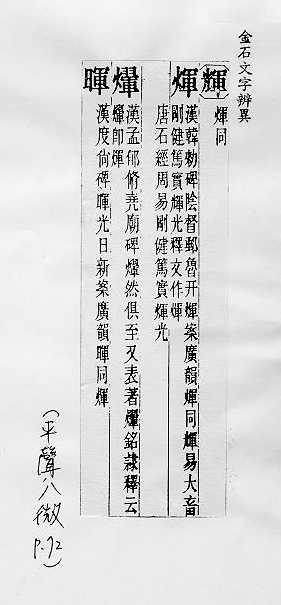 金石文字辨異
輝 煇同
煇 漢韓勑碑陰督郵魯开煇案廣韻煇同輝易大畜
剛健篤實輝光釋文作煇
唐石經周易剛健篤實煇光
漢孟郁脩堯廟碑 然俱至又表著 銘隸釋云
即煇
暉 漢度尚碑暉光日新案廣韻暉同輝
(平聲八微 P.72)